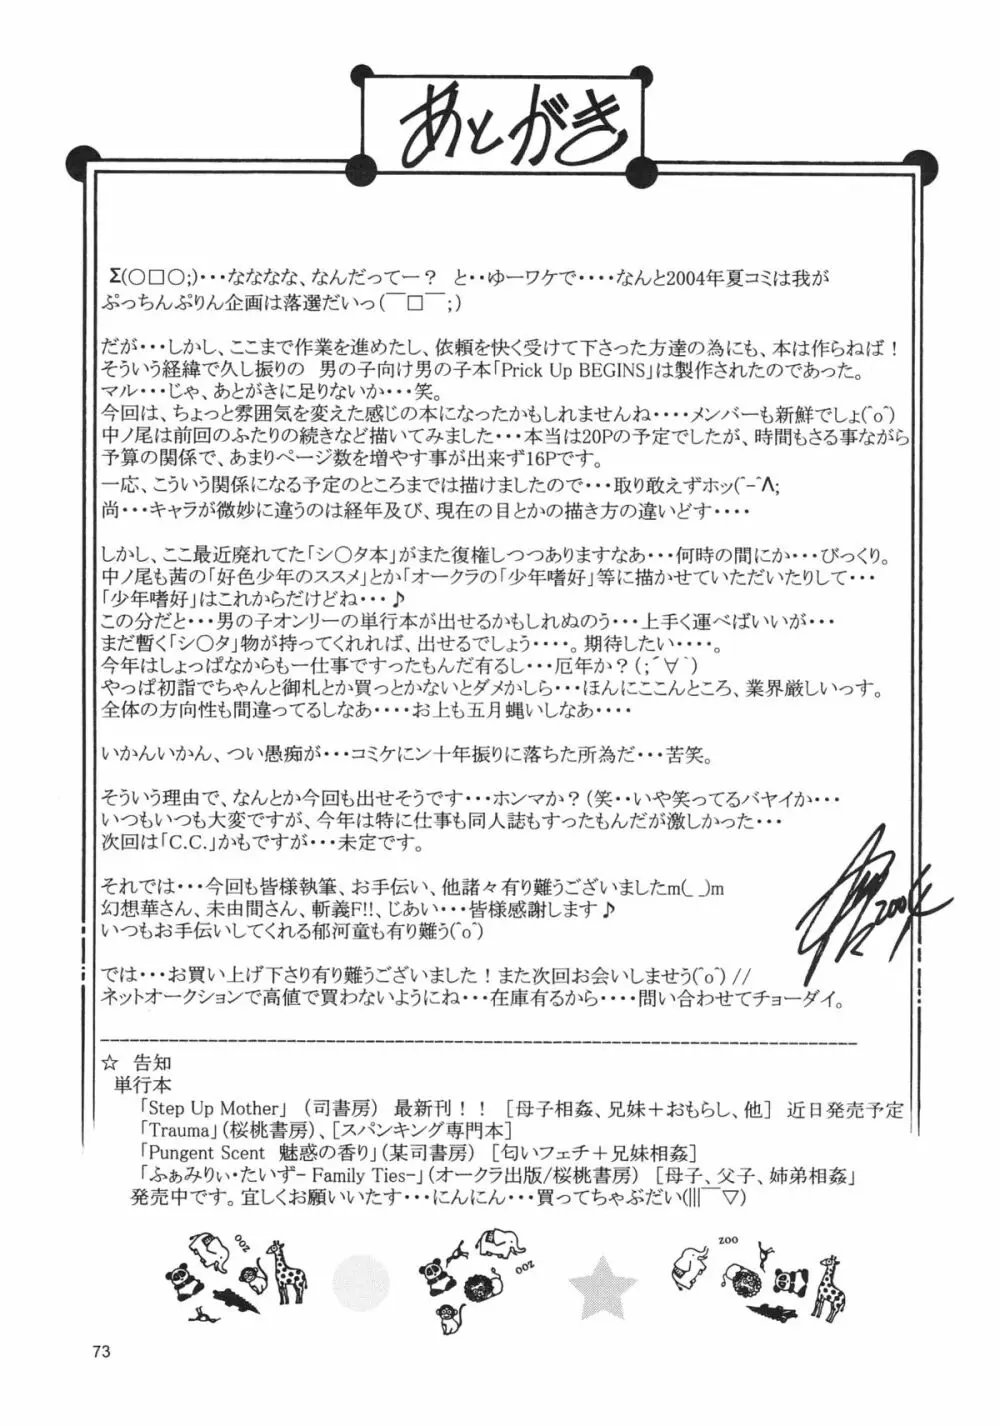 あとがき
Σ(○□○;)・・・ななななな、なんだってー？ と・・ゆーワケで・・・・なんと2004年夏コミは我が
ぷっちんぷりん企画は落選だいっ(￣□￣;)
だが・・・しかし、ここまで作業を進めたし、依頼を快く受けて下さった方達の為にも、本は作らねば！
そういう経緯で久し振りの 男の子向け男の子本「Prick Up BEGINS」は製作されたのであった。
マル・・・じゃ、あとがきに足りないか・・・笑。
今回は、ちょっと雰囲気を変えた感じの本になったかもしれませんね・・・・メンバーも新鮮でしょ(^o^)
中ノ尾は前回のふたりの続きなど描いてみました・・・本当は20Pの予定でしたが、時間もさる事ながら
予算の関係で、あまりページ数を増やす事が出来ず16Pです。
一応、こういう関係になる予定のところまでは描けましたので・・・取り敢えずホッ(^-^Λ;
尚・・・キャラが微妙に違うのは経年及び、現在の目とかの描き方の違いどす・・・・
しかし、ここ最近廃れてた「シ○タ本」がまた復権しつつありますなあ・・・何時の間にか・・・びっくり。
中ノ尾も茜の「好色少年のススメ」とか「オークラの「少年嗜好」等に描かせていただいたりして・・・
「少年嗜好」はこれからだけどね・・・♪
この分だと・・・男の子オンリーの単行本が出せるかもしれぬのう・・・上手く運べばいいが・・・
まだ暫く「シ○タ」物が持ってくれれば、出せるでしょう・・・・。期待したい・・・・。
今年はしょっぱなからも一仕事ですったもんだ有るし・・・厄年か？(;´∀｀)
やっぱ初詣でちゃんと御札とか買っとかないとダメかしら・・・ほんにここんところ、業界厳しいっす。
全体の方向性も間違ってるしなあ・・・・お上も五月蝿いしなあ・・・・
いかんいかん、つい愚痴が・・・コミケにン十年振りに落ちた所為だ・・・苦笑。
そういう理由で、なんとか今回も出せそうです・・・ホンマか？(笑・・いや笑ってるバヤイか・・・
いつもいつも大変ですが、今年は特に仕事も同人誌もすったもんだが激しかった・・・
次回は「C.C.」かもですが・・・未定です。
それでは・・・今回も皆様執筆、お手伝い、他諸々有り難うございましたm(_ _)m
幻想華さん、未由間さん、斬義F!!、じあい・・・皆様感謝します♪
いつもお手伝いしてくれる郁河童も有り難う(^o^)
では・・・お買い上げ下さり有り難うございました！また次回お会いしませう(^o^)//
ネットオークションで高値で買わないようにね・・・在庫有るから・・・・問い合わせてチョーダイ。
2004
☆ 告知
単行本
「Step Up Mother」 (司書房) 最新刊！！ [母子相姦、兄妹＋おもらし、他] 近日発売予定
「Trauma」(桜桃書房)、[スパンキング専門本]
「Pungent Scent 魅惑の香り」(某司書房) [匂いフェチ＋兄妹相姦]
「ふぁみりぃ・たいず- Family Ties-」(オークラ出版/桜桃書房) [母子、父子、姉弟相姦」
発売中です。宜しくお願いいたす・・・にんにん・・・買ってちゃぶだい(|||￣▽)
zoo
zoo
zoo
73